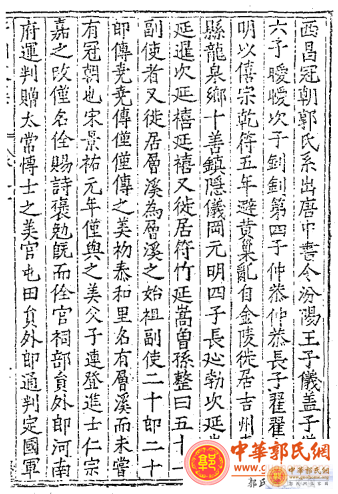 西昌冠朝郭氏系出唐中書令汾陽王子儀蓋子
六子曖曖次子釗釗第四子仲恭仲恭長子翟翟
明以僖宗乾符五年避黃巢亂自金陵徙居吉州
縣龍泉鄉十善鎮隱儀岡元明四子長延勃次延
延暹次延禧延禧又徙居符竹延嵩曾孫整曰五十
副使者又徙居層溪為層溪之始祖副使二十郎二十
郎傳堯堯傳僅僅傳之美初泰和里名有層溪而未嘗
有冠朝也宋景祐元年僅與之美父子連登進士仁宗
嘉之改僅名佺賜詩褒勉既而佺官祠部員外郎河南
府運判贈太常博士之美官屯田員外郎通判定國軍
中華郭氏網